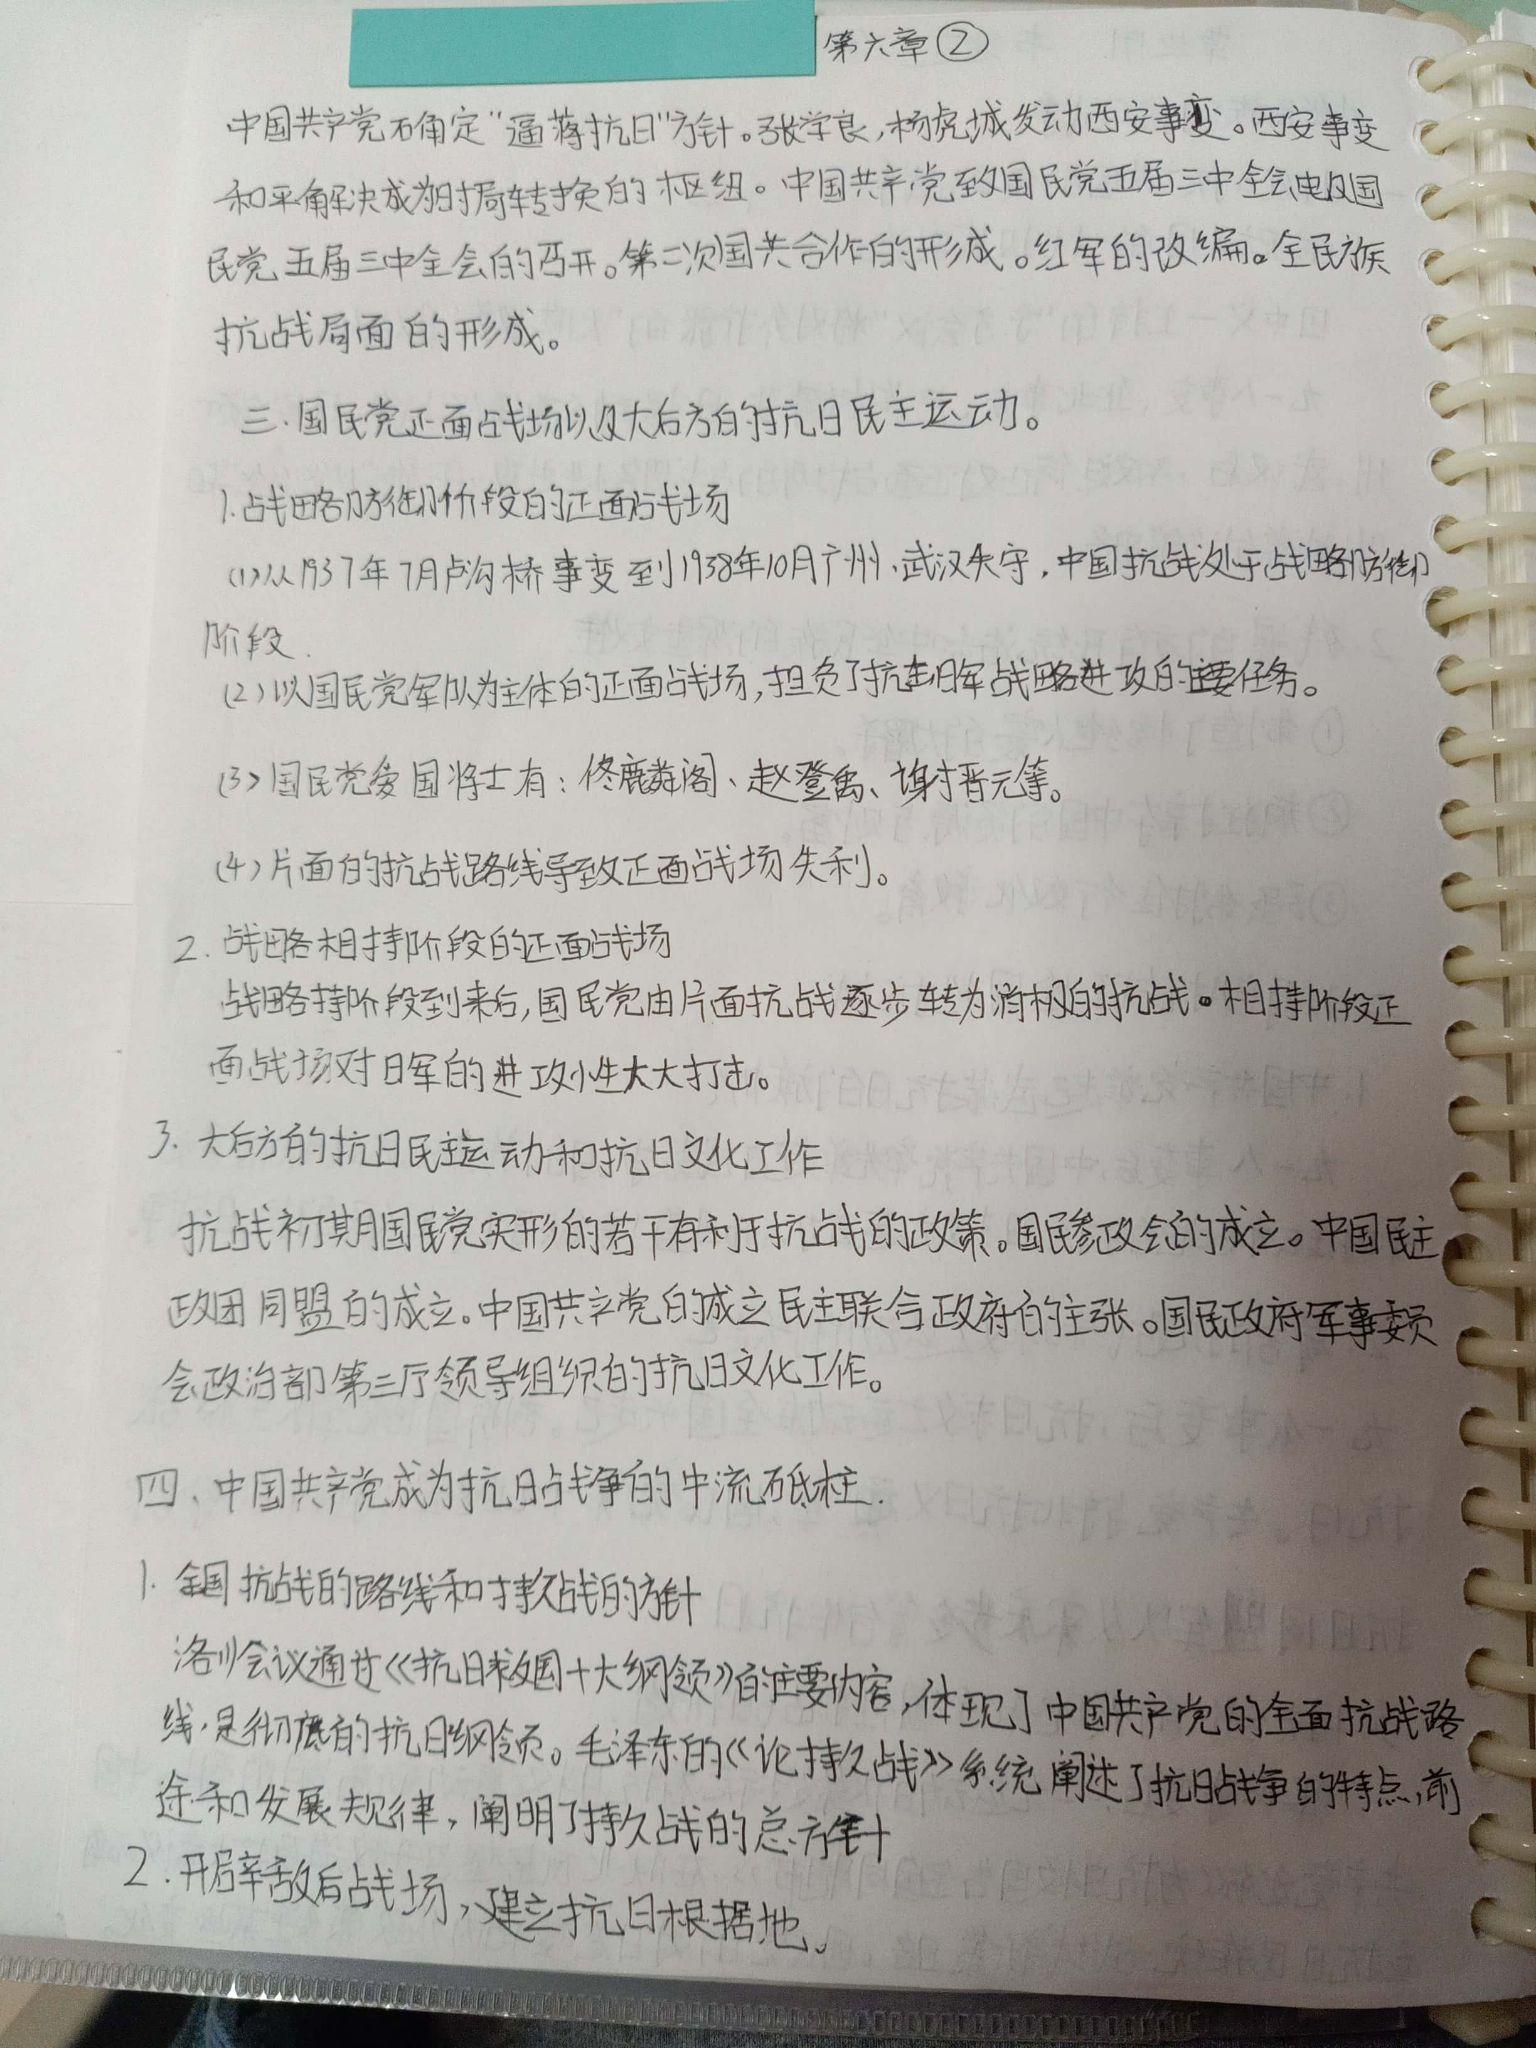 第六章②
中国共产党石角定“逼蒋抗日”方针。张学良,杨虎城发动西安事变。西安事变
和平解决成为时局转换的枢纽。中国共产党致国民党五届三中全会电及国
民党五届三中全会的召开。第二次国共合作的形成。红军的改编。全民族
抗战局面的形成。
三.国民党正面战场以及大后方的抗日民主运动。
1.战略防御阶段的正面战场
(1)从1937年7月卢沟桥事变到1938年10月广州、武汉失守,中国抗战处于战略防御
阶段.
(2)以国民党军队为主体的正面战场,担负了抗击日军战略进攻的主要任务。
(3)国民党爱国将士有:佟麟阁、赵登禹、谢晋元等。
(4)片面的抗战路线导致正面战场失利。
2.战略相持阶段的正面战场
战略持阶段到来后,国民党由片面抗战逐步转为消极的抗战。相持阶段正
面战场对日军的进攻性大大打击。
3.大后方的抗日民主运动和抗日文化工作
抗战初期国民党实形的若干有利于抗战的政策。国民参政会的成立。中国民主
政团同盟的成立。中国共产党的成立民主联合政府的主张。国民政府军事委员
会政治部第三厅领导组织的抗日文化工作。
四、中国共产党成为抗日战争的中流砥柱.
1.全国抗战的路线和持久战的方针
洛川会议通过《抗日救国十大纲领》的主要内容,体现了中国共产党的全面抗战路
线,是彻底的抗日纲领。毛泽东的《论持久战》系统阐述了抗日战争的特点,前
途和发展规律,阐明了持久战的总方针
2.开辟敌后战场,建立抗日根据地。